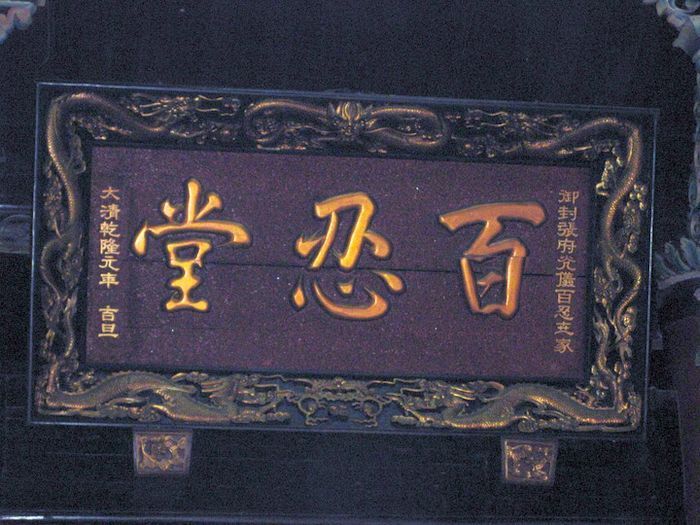 御封張府光儀百忍玄家
百忍堂
大清乾隆元年 吉旦